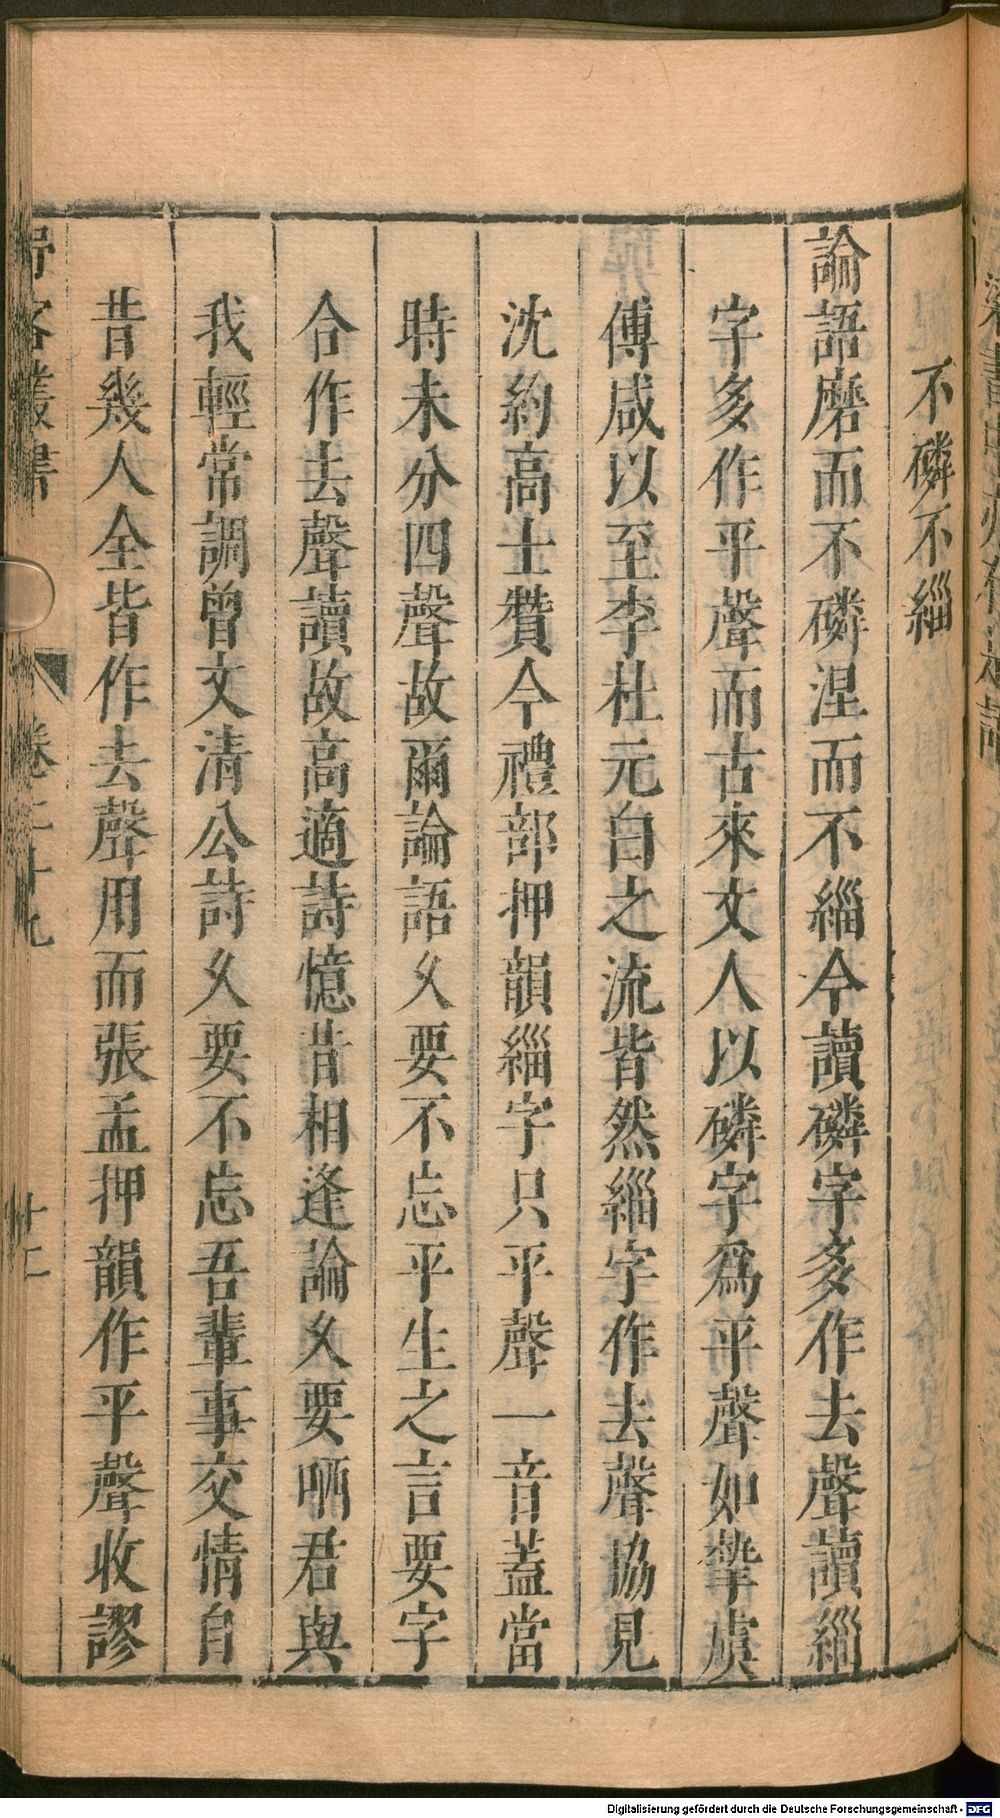 不磷不緇
論語磨而不磷涅而不緇今讀磷字多作去聲讀緇
字多作平聲而古來文人以磷字爲平聲如摯虞
傅咸以至李杜元白之流皆然緇字作去聲協見
沈約高士贊今禮部押韻緇字只平聲一音蓋當
時未分四聲故爾論語久要不忘平生之言要字
合作去聲讀故高適詩憶昔相逢論久要哂君與
我輕常調曾文清公詩久要不忘吾輩事交情自
昔幾人全皆作去聲用而張孟押韻作平聲收謬
野客叢書
卷二十九
十二
Digitalisierung gefördert durch die Deutsche Forschungsgemeinschaft - DFG